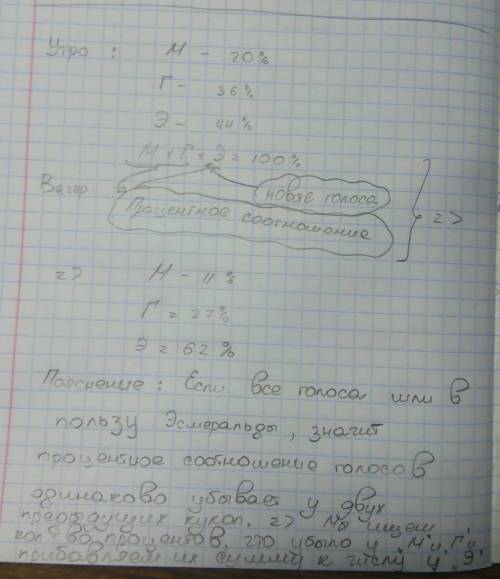 Утро : М - 20%
Г - 36%
Э - 44%
М + Г + Э = 100%
Вечер:
новые голоса
Процентное соотношение
=>
=> М - 11%
Г = 27%
Э = 62%
Пояснение : Если все голоса шли в
пользу Эсмеральды, значит
процентное соотношение голосов
одинаково убывает у двух
предыдущих кукол. => Мы ищем
кол во процентов, что убыло у "М" и "Г" и
прибавляем их сумму к числу у "Э"